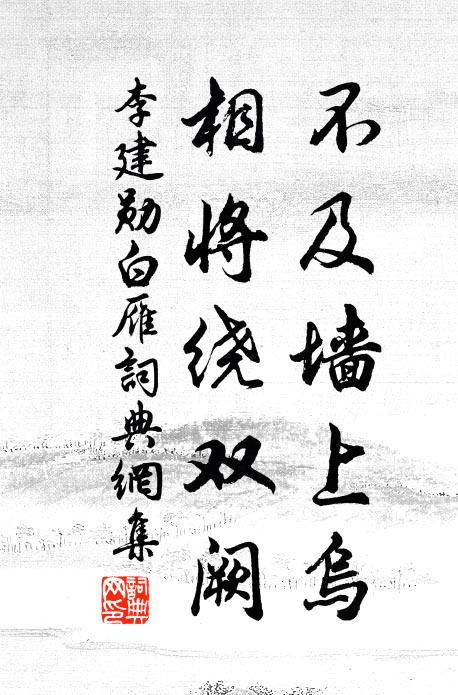 不及墙上乌
相将绕双阙
李建勋白雁詞典網集
詞典网印